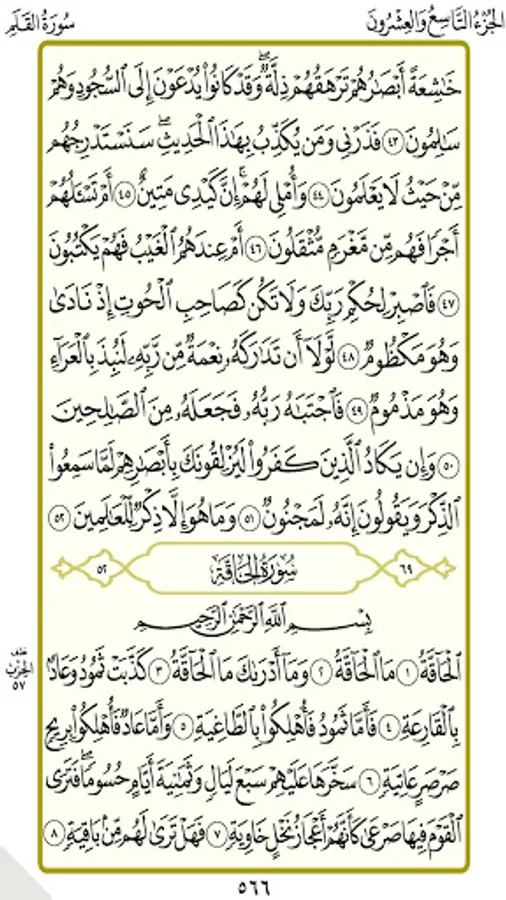 الجُزْءُ التَّاسِعُ وَالعِشْرُونَ
سُورَةُ القَلَمِ
خَٰشِعَةً أَبْصَٰرُهُمْ تَرْهَقُهُمْ ذِلَّةٌۖ وَقَدْ كَانُوا۟ يُدْعَوْنَ إِلَى ٱلسُّجُودِ وَهُمْ
سَٰلِمُونَ ٤٣ فَذَرْنِى وَمَن يُكَذِّبُ بِهَٰذَا ٱلْحَدِيثِۖ سَنَسْتَدْرِجُهُم
مِّنْ حَيْثُ لَا يَعْلَمُونَ ٤٤ وَأُمْلِى لَهُمْۚ إِنَّ كَيْدِى مَتِينٌ ٤٥ أَمْ تَسْـَٔلُهُمْ
أَجْرًا فَهُم مِّن مَّغْرَمٍ مُّثْقَلُونَ ٤٦ أَمْ عِندَهُمُ ٱلْغَيْبُ فَهُمْ يَكْتُبُونَ
٤٧ فَٱصْبِرْ لِحُكْمِ رَبِّكَ وَلَا تَكُن كَصَاحِبِ ٱلْحُوتِ إِذْ نَادَىٰ
وَهُوَ مَكْظُومٌ ٤٨ لَّوْلَآ أَن تَدَٰرَكَهُۥ نِعْمَةٌ مِّن رَّبِّهِۦ لَنُبِذَ بِٱلْعَرَآءِ
وَهُوَ مَذْمُومٌ ٤٩ فَٱجْتَبَٰهُ رَبُّهُۥ فَجَعَلَهُۥ مِنَ ٱلصَّٰلِحِينَ
٥٠ وَإِن يَكَادُ ٱلَّذِينَ كَفَرُوا۟ لَيُزْلِقُونَكَ بِأَبْصَٰرِهِمْ لَمَّا سَمِعُوا۟
ٱلذِّكْرَ وَيَقُولُونَ إِنَّهُۥ لَمَجْنُونٌ ٥١ وَمَا هُوَ إِلَّا ذِكْرٌ لِّلْعَٰلَمِينَ ٥٢
٦٩ سُورَةُ الحَاقَّةِ ٥٢
بِسْمِ ٱللَّهِ ٱلرَّحْمَٰنِ ٱلرَّحِيمِ
ٱلْحَآقَّةُ ١ مَا ٱلْحَآقَّةُ ٢ وَمَآ أَدْرَىٰكَ مَا ٱلْحَآقَّةُ ٣ كَذَّبَتْ ثَمُودُ وَعَادٌۢ
نصف
الحزب
٥٧
بِٱلْقَارِعَةِ ٤ فَأَمَّا ثَمُودُ فَأُهْلِكُوا۟ بِٱلطَّاغِيَةِ ٥ وَأَمَّا عَادٌ فَأُهْلِكُوا۟ بِرِيحٍ
صَرْصَرٍ عَاتِيَةٍ ٦ سَخَّرَهَا عَلَيْهِمْ سَبْعَ لَيَالٍ وَثَمَٰنِيَةَ أَيَّامٍ حُسُومًاۖ فَتَرَى
ٱلْقَوْمَ فِيهَا صَرْعَىٰ كَأَنَّهُمْ أَعْجَازُ نَخْلٍ خَاوِيَةٍ ٧ فَهَلْ تَرَىٰ لَهُم مِّنۢ بَاقِيَةٍ ٨
٥٦٦